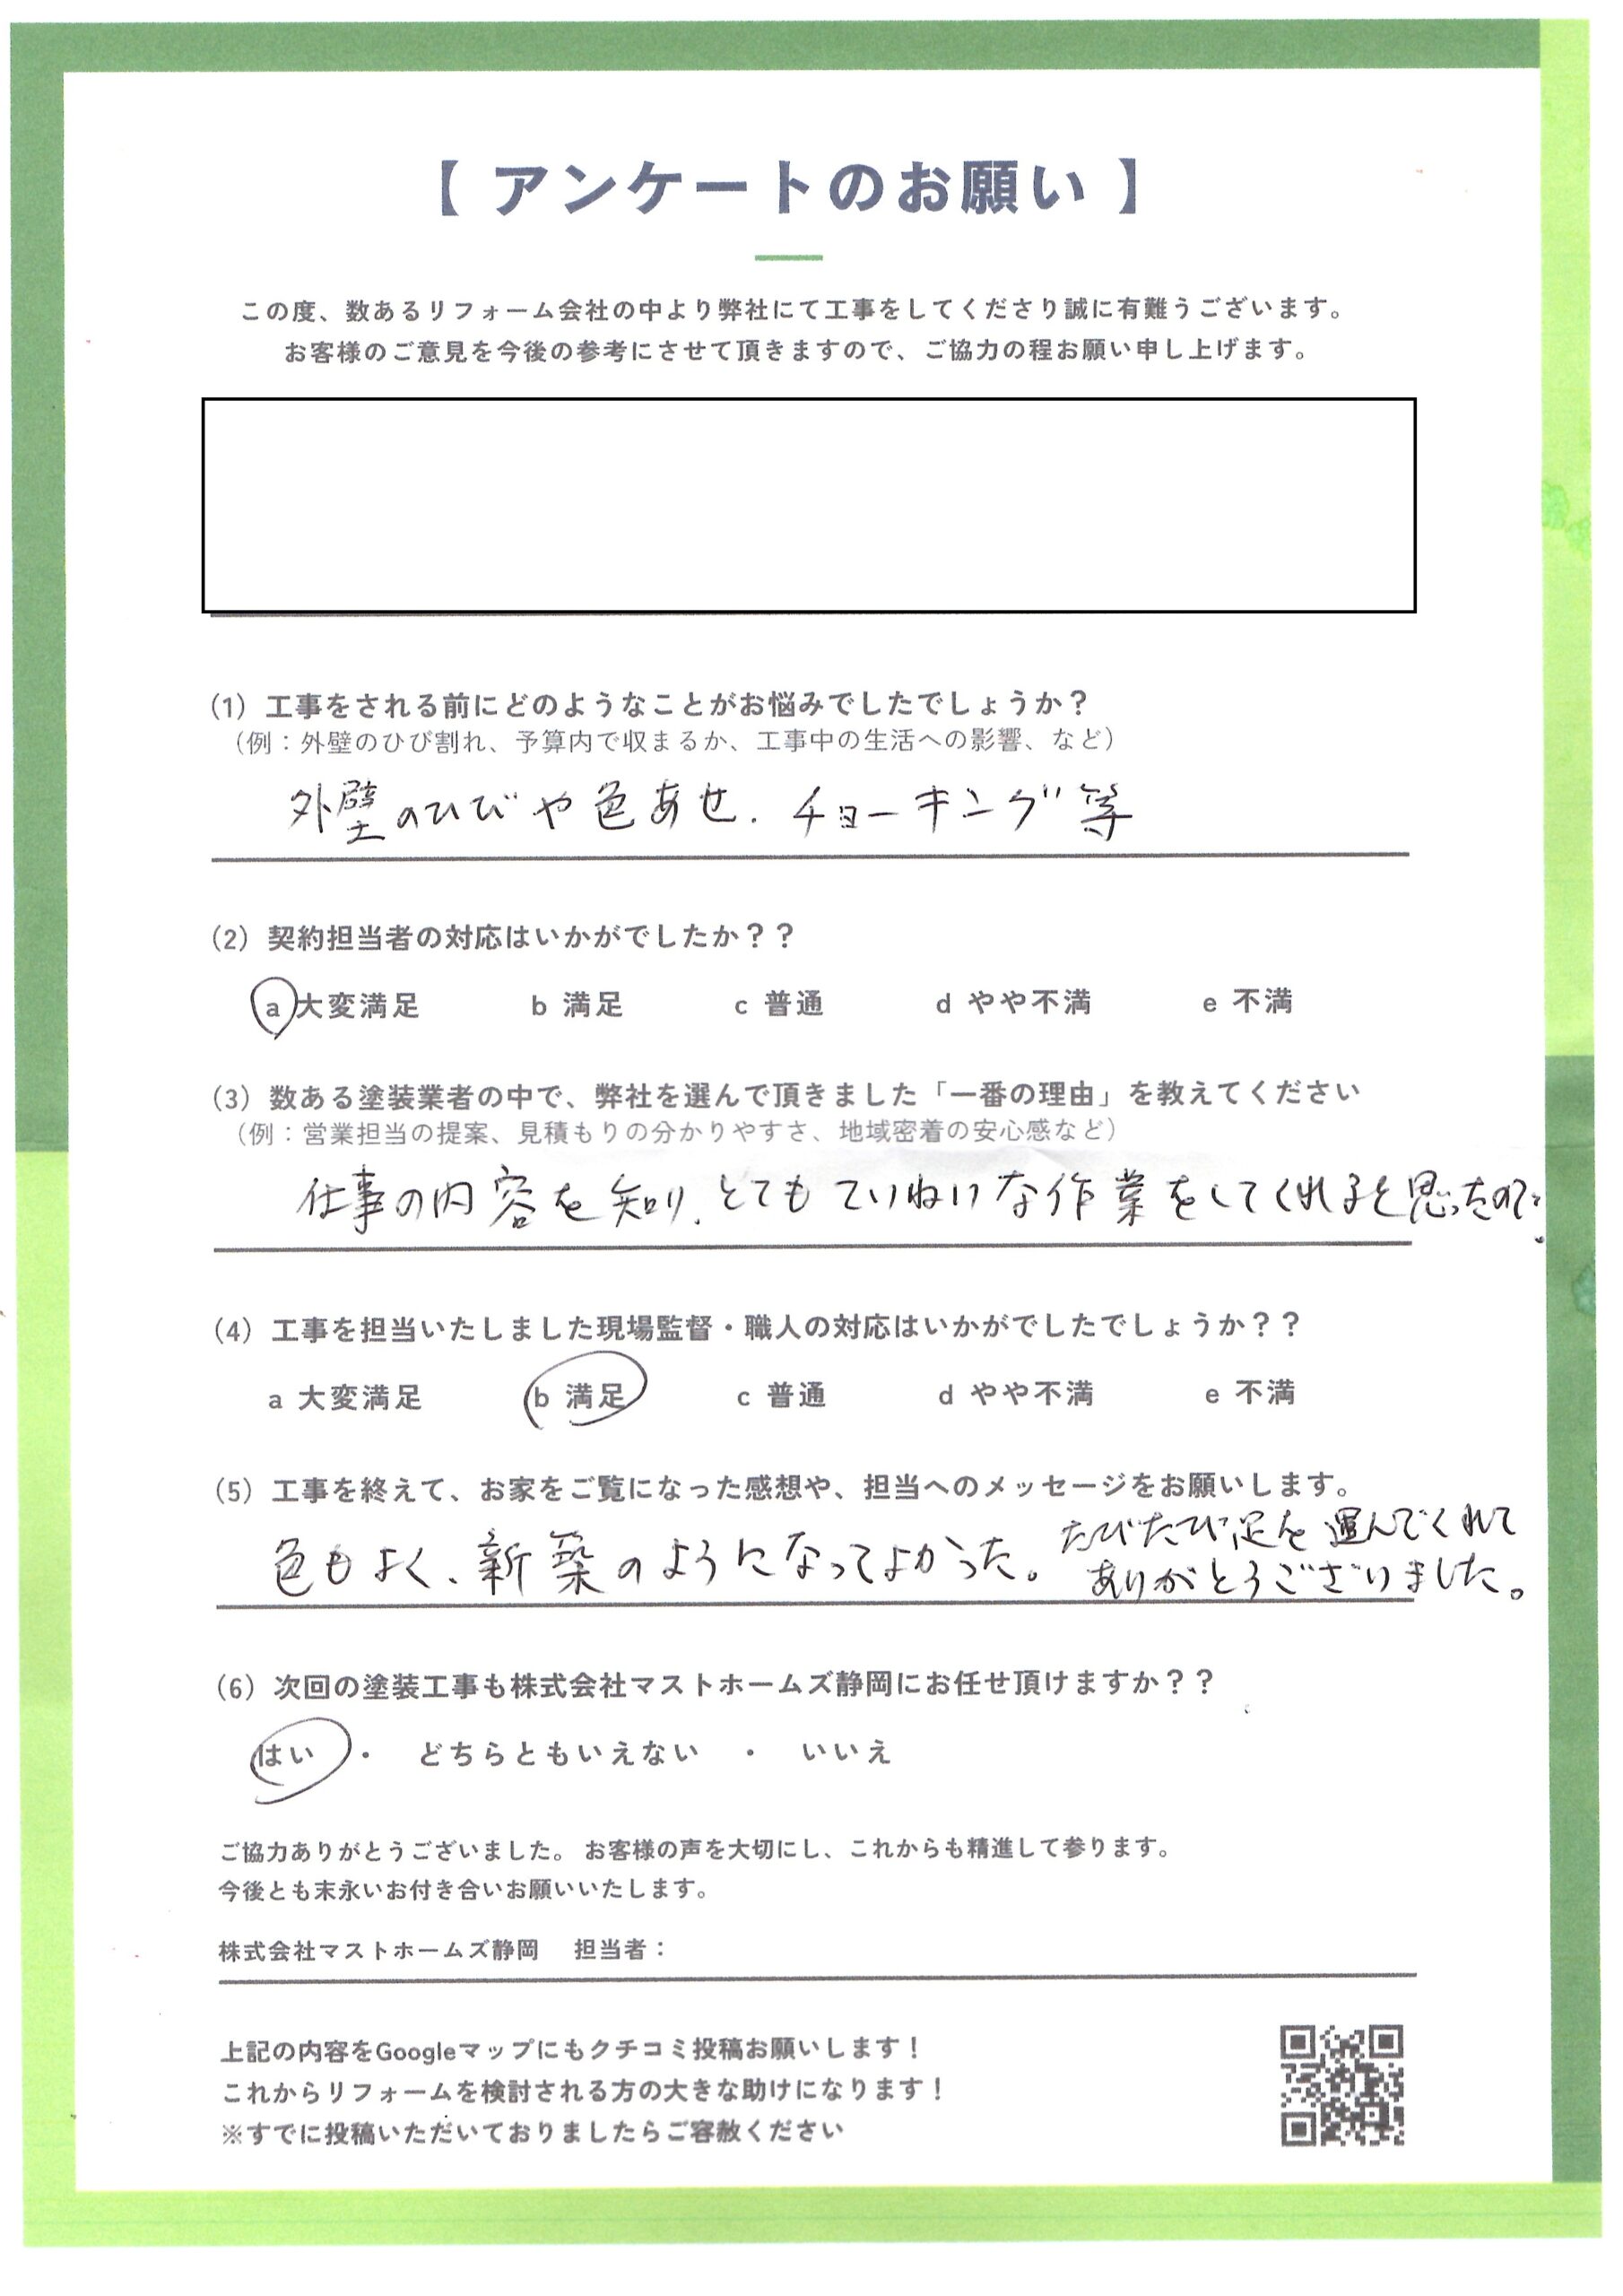 【 アンケートのお願い 】
この度、数あるリフォーム会社の中より弊社にて工事をしてくださり誠に有難うございます。
お客様のご意見を今後の参考にさせて頂きますので、ご協力の程お願い申し上げます。
(1) 工事をされる前にどのようなことがお悩みでしたでしょうか？
（例：外壁のひび割れ、予算内で収まるか、工事中の生活への影響、など）
外壁のひびや色あせ、チョーキング等
(2) 契約担当者の対応はいかがでしたか？？
a 大変満足 b 満足 c 普通 d やや不満 e 不満
(3) 数ある塗装業者の中で、弊社を選んで頂きました「一番の理由」を教えてください
（例：営業担当の提案、見積もりの分かりやすさ、地域密着の安心感など）
仕事の内容を知り、とてもていねいな作業をしてくれると思ったので。
(4) 工事を担当いたしました現場監督・職人の対応はいかがでしたでしょうか？？
a 大変満足 b 満足 c 普通 d やや不満 e 不満
(5) 工事を終えて、お家をご覧になった感想や、担当へのメッセージをお願いします。
色もよく、新築のようになってよかった。
たびたび足を運んでくれて
ありがとうございました。
(6) 次回の塗装工事も株式会社マストホームズ静岡にお任せ頂けますか？？
はい ・ どちらともいえない ・ いいえ
ご協力ありがとうございました。 お客様の声を大切にし、これからも精進して参ります。
今後とも末永いお付き合いお願いいたします。
株式会社マストホームズ静岡 担当者：
上記の内容をGoogleマップにもクチコミ投稿お願いします！
これからリフォームを検討される方の大きな助けになります！
※すでに投稿いただいておりましたらご容赦ください